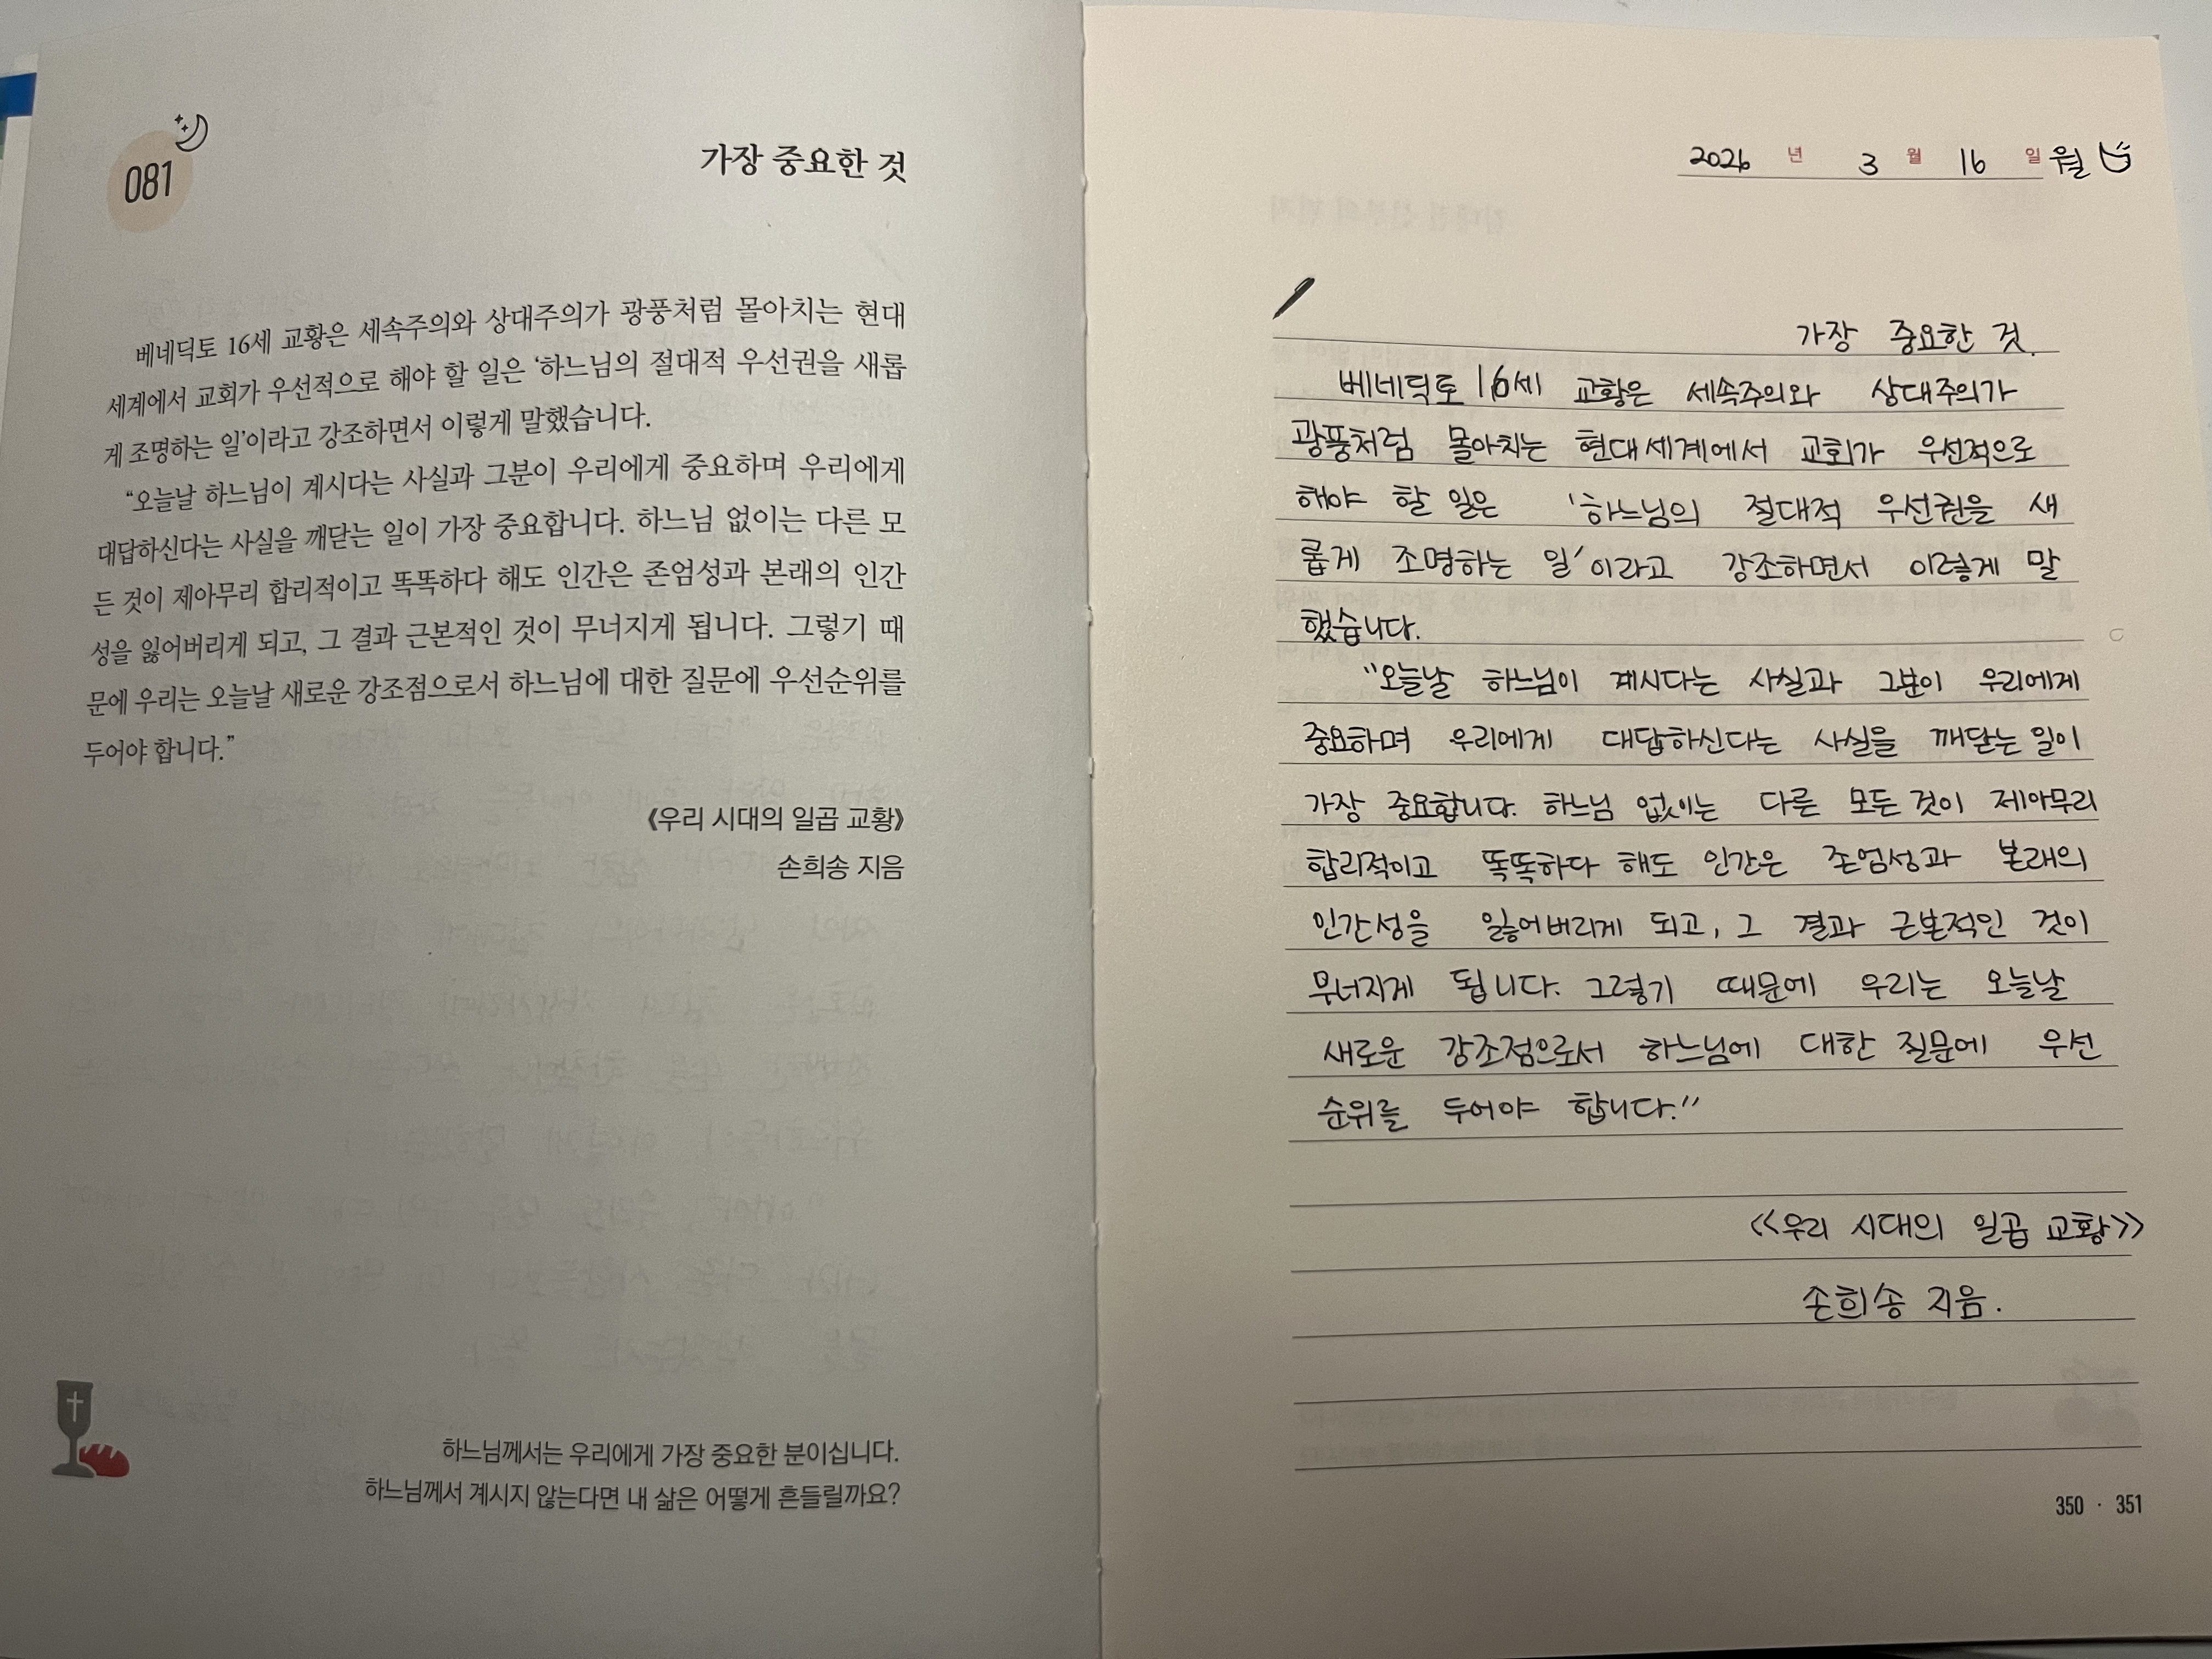 081
가장 중요한 것
베네딕토 16세 교황은 세속주의와 상대주의가 광풍처럼 몰아치는 현대
세계에서 교회가 우선적으로 해야 할 일은 ‘하느님의 절대적 우선권을 새롭
게 조명하는 일’이라고 강조하면서 이렇게 말했습니다.
“오늘날 하느님이 계시다는 사실과 그분이 우리에게 중요하며 우리에게
대답하신다는 사실을 깨닫는 일이 가장 중요합니다. 하느님 없이는 다른 모
든 것이 제아무리 합리적이고 똑똑하다 해도 인간은 존엄성과 본래의 인간
성을 잃어버리게 되고, 그 결과 근본적인 것이 무너지게 됩니다. 그렇기 때
문에 우리는 오늘날 새로운 강조점으로서 하느님에 대한 질문에 우선순위를
두어야 합니다.”
《우리 시대의 일곱 교황》
손희송 지음
하느님께서는 우리에게 가장 중요한 분이십니다.
하느님께서 계시지 않는다면 내 삶은 어떻게 흔들릴까요?
2026 년 3 월 16 일 월
가장 중요한 것.
베네딕토 16세 교황은 세속주의와 상대주의가
광풍처럼 몰아치는 현대세계에서 교회가 우선적으로
해야 할 일은 '하느님의 절대적 우선권을 새
롭게 조명하는 일'이라고 강조하면서 이렇게 말
했습니다.
"오늘날 하느님이 계시다는 사실과 그분이 우리에게
중요하며 우리에게 대답하신다는 사실을 깨닫는 일이
가장 중요합니다. 하느님 없이는 다른 모든 것이 제아무리
합리적이고 똑똑하다 해도 인간은 존엄성과 본래의
인간성을 잃어버리게 되고, 그 결과 근본적인 것이
무너지게 됩니다. 그렇기 때문에 우리는 오늘날
새로운 강조점으로서 하느님에 대한 질문에 우선
순위를 두어야 합니다."
<<우리 시대의 일곱 교황>>
손희송 지음.
350 · 351